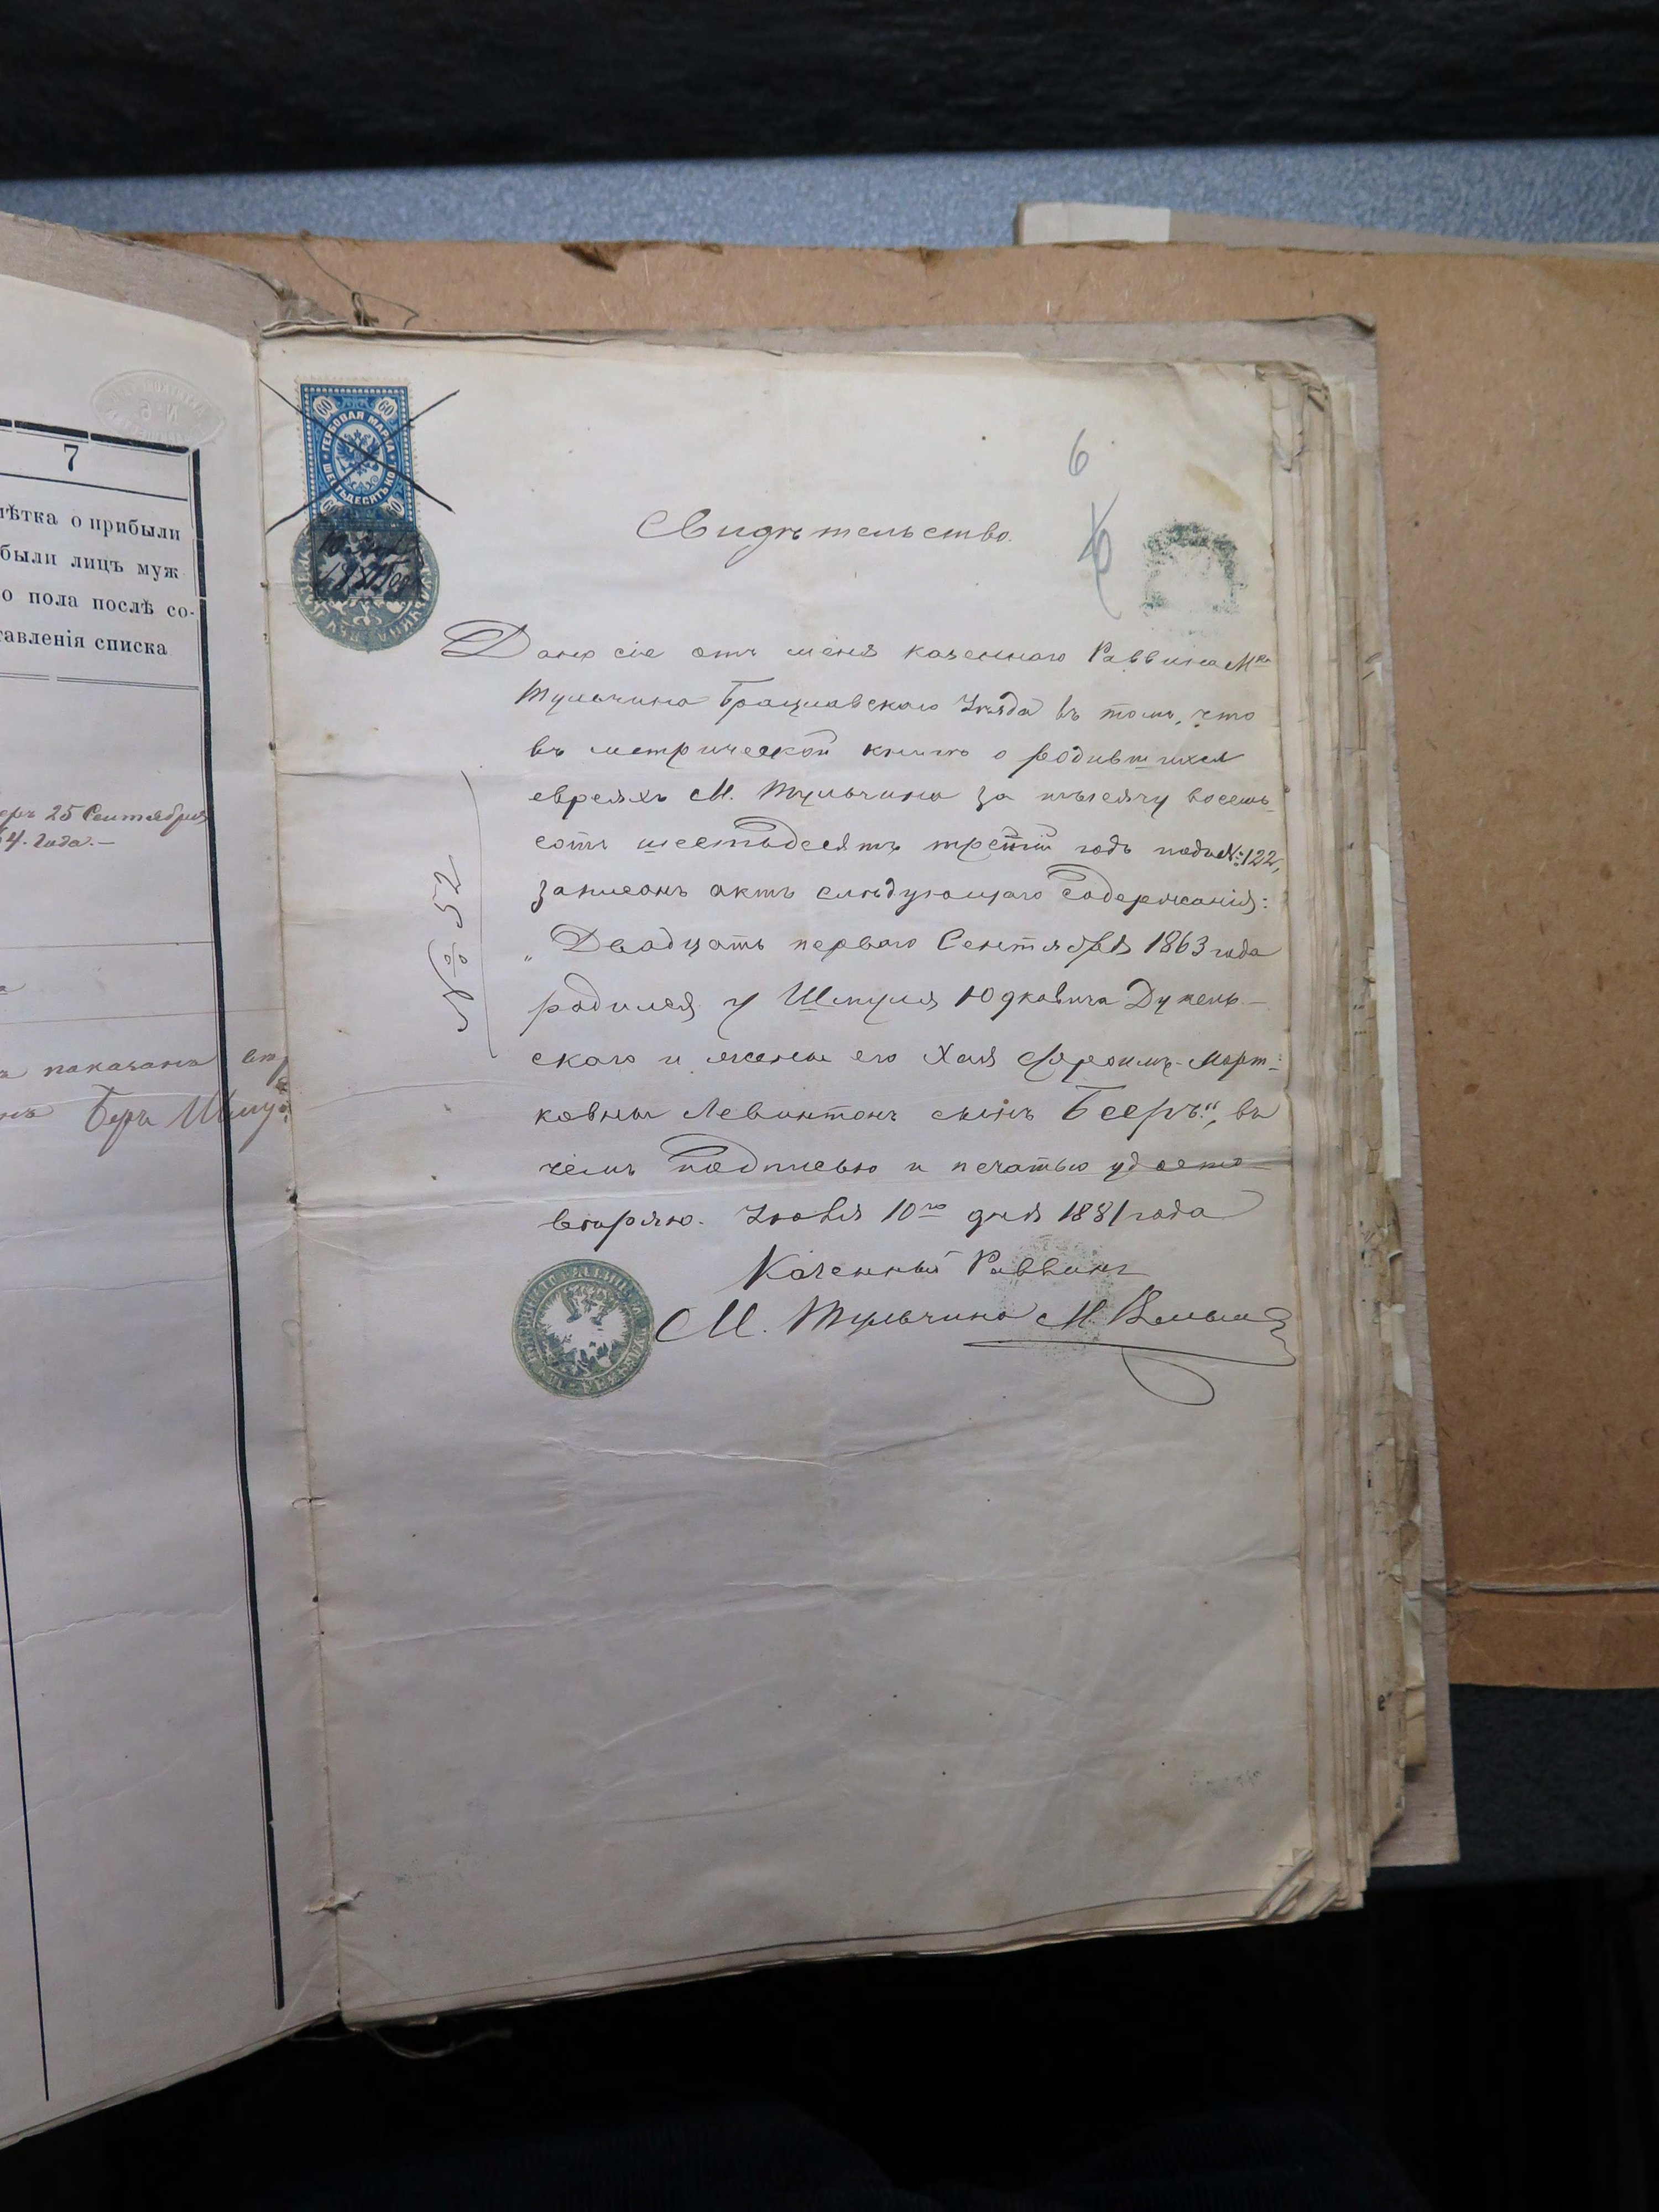 7
мѣтка о прибыли
были лицъ муж
о пола послѣ со-
тавленія списка
25 Сентября
4. года.—
показана
Беръ Шмул
60 60
ГЕРБОВАЯ МАРКА
ШЕСТЬДЕСЯТЪ КОП
6
Свидѣтельство.
Дано сіе отъ меня казеннаго Раввина Мка
Тульчина Брацлавскаго Уѣзда въ томъ, что
въ метрической книгѣ о родившихся
евреяхъ М. Тульчина за тысячу восемь-
сотъ шестьдесятъ третій годъ подъ №122,
записанъ актъ слѣдующаго содержанія:
„Двадцать перваго Сентября 1863 года
родился у Шмуля Юдковича Дукель-
скаго и жены его Хая Фроимъ-Морт-
ковны Левинтонъ сынъ Бееръ“, въ
чемъ подписью и печатью удосто-
вѣряю. Іюня 10го дня 1881 года
Казенный Раввинъ
М. Тульчина М.
№ 52